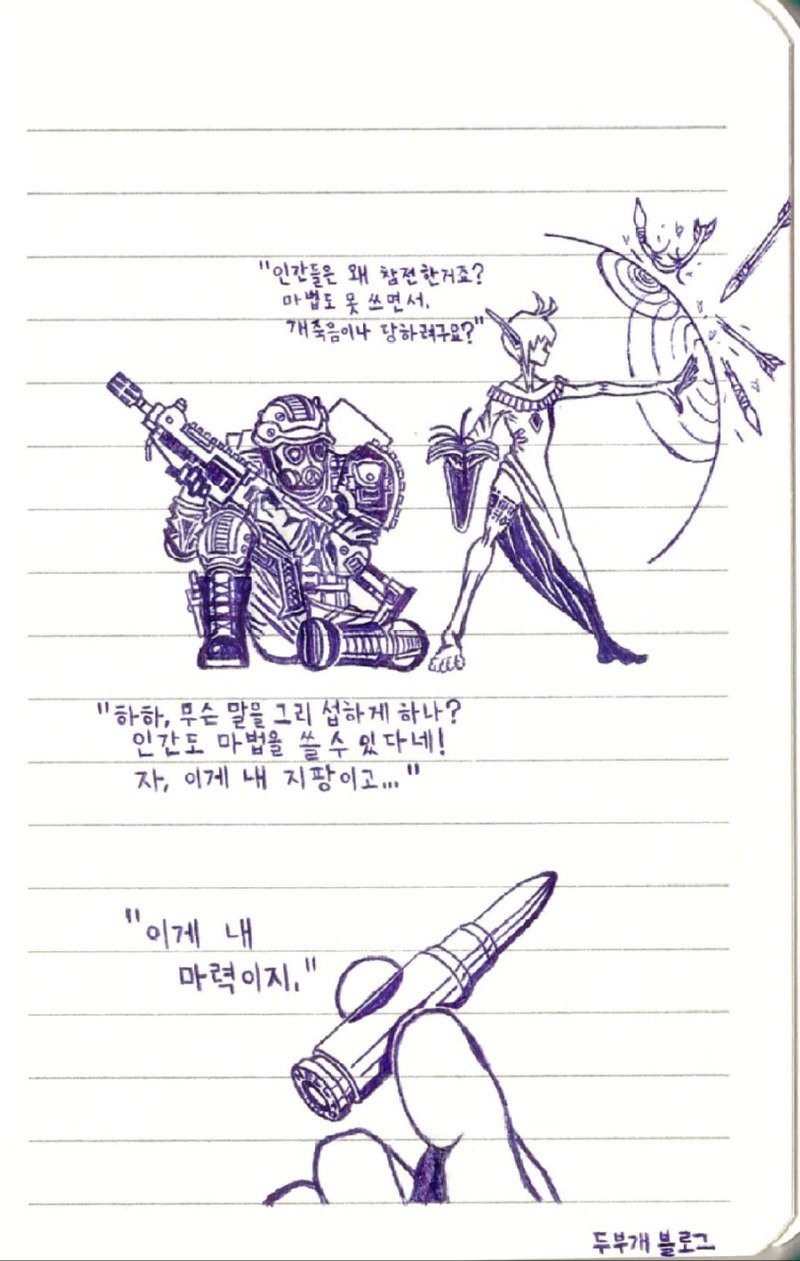 "인간들은 왜 참전한거죠?
마법도 못 쓰면서.
개죽음이나 당하려구요?"
"하하, 무슨 말을 그리 섭하게 하나?
인간도 마법을 쓸 수 있다네!
자, 이게 내 지팡이고..."
"이게 내
마력이지."
두부개 블로그